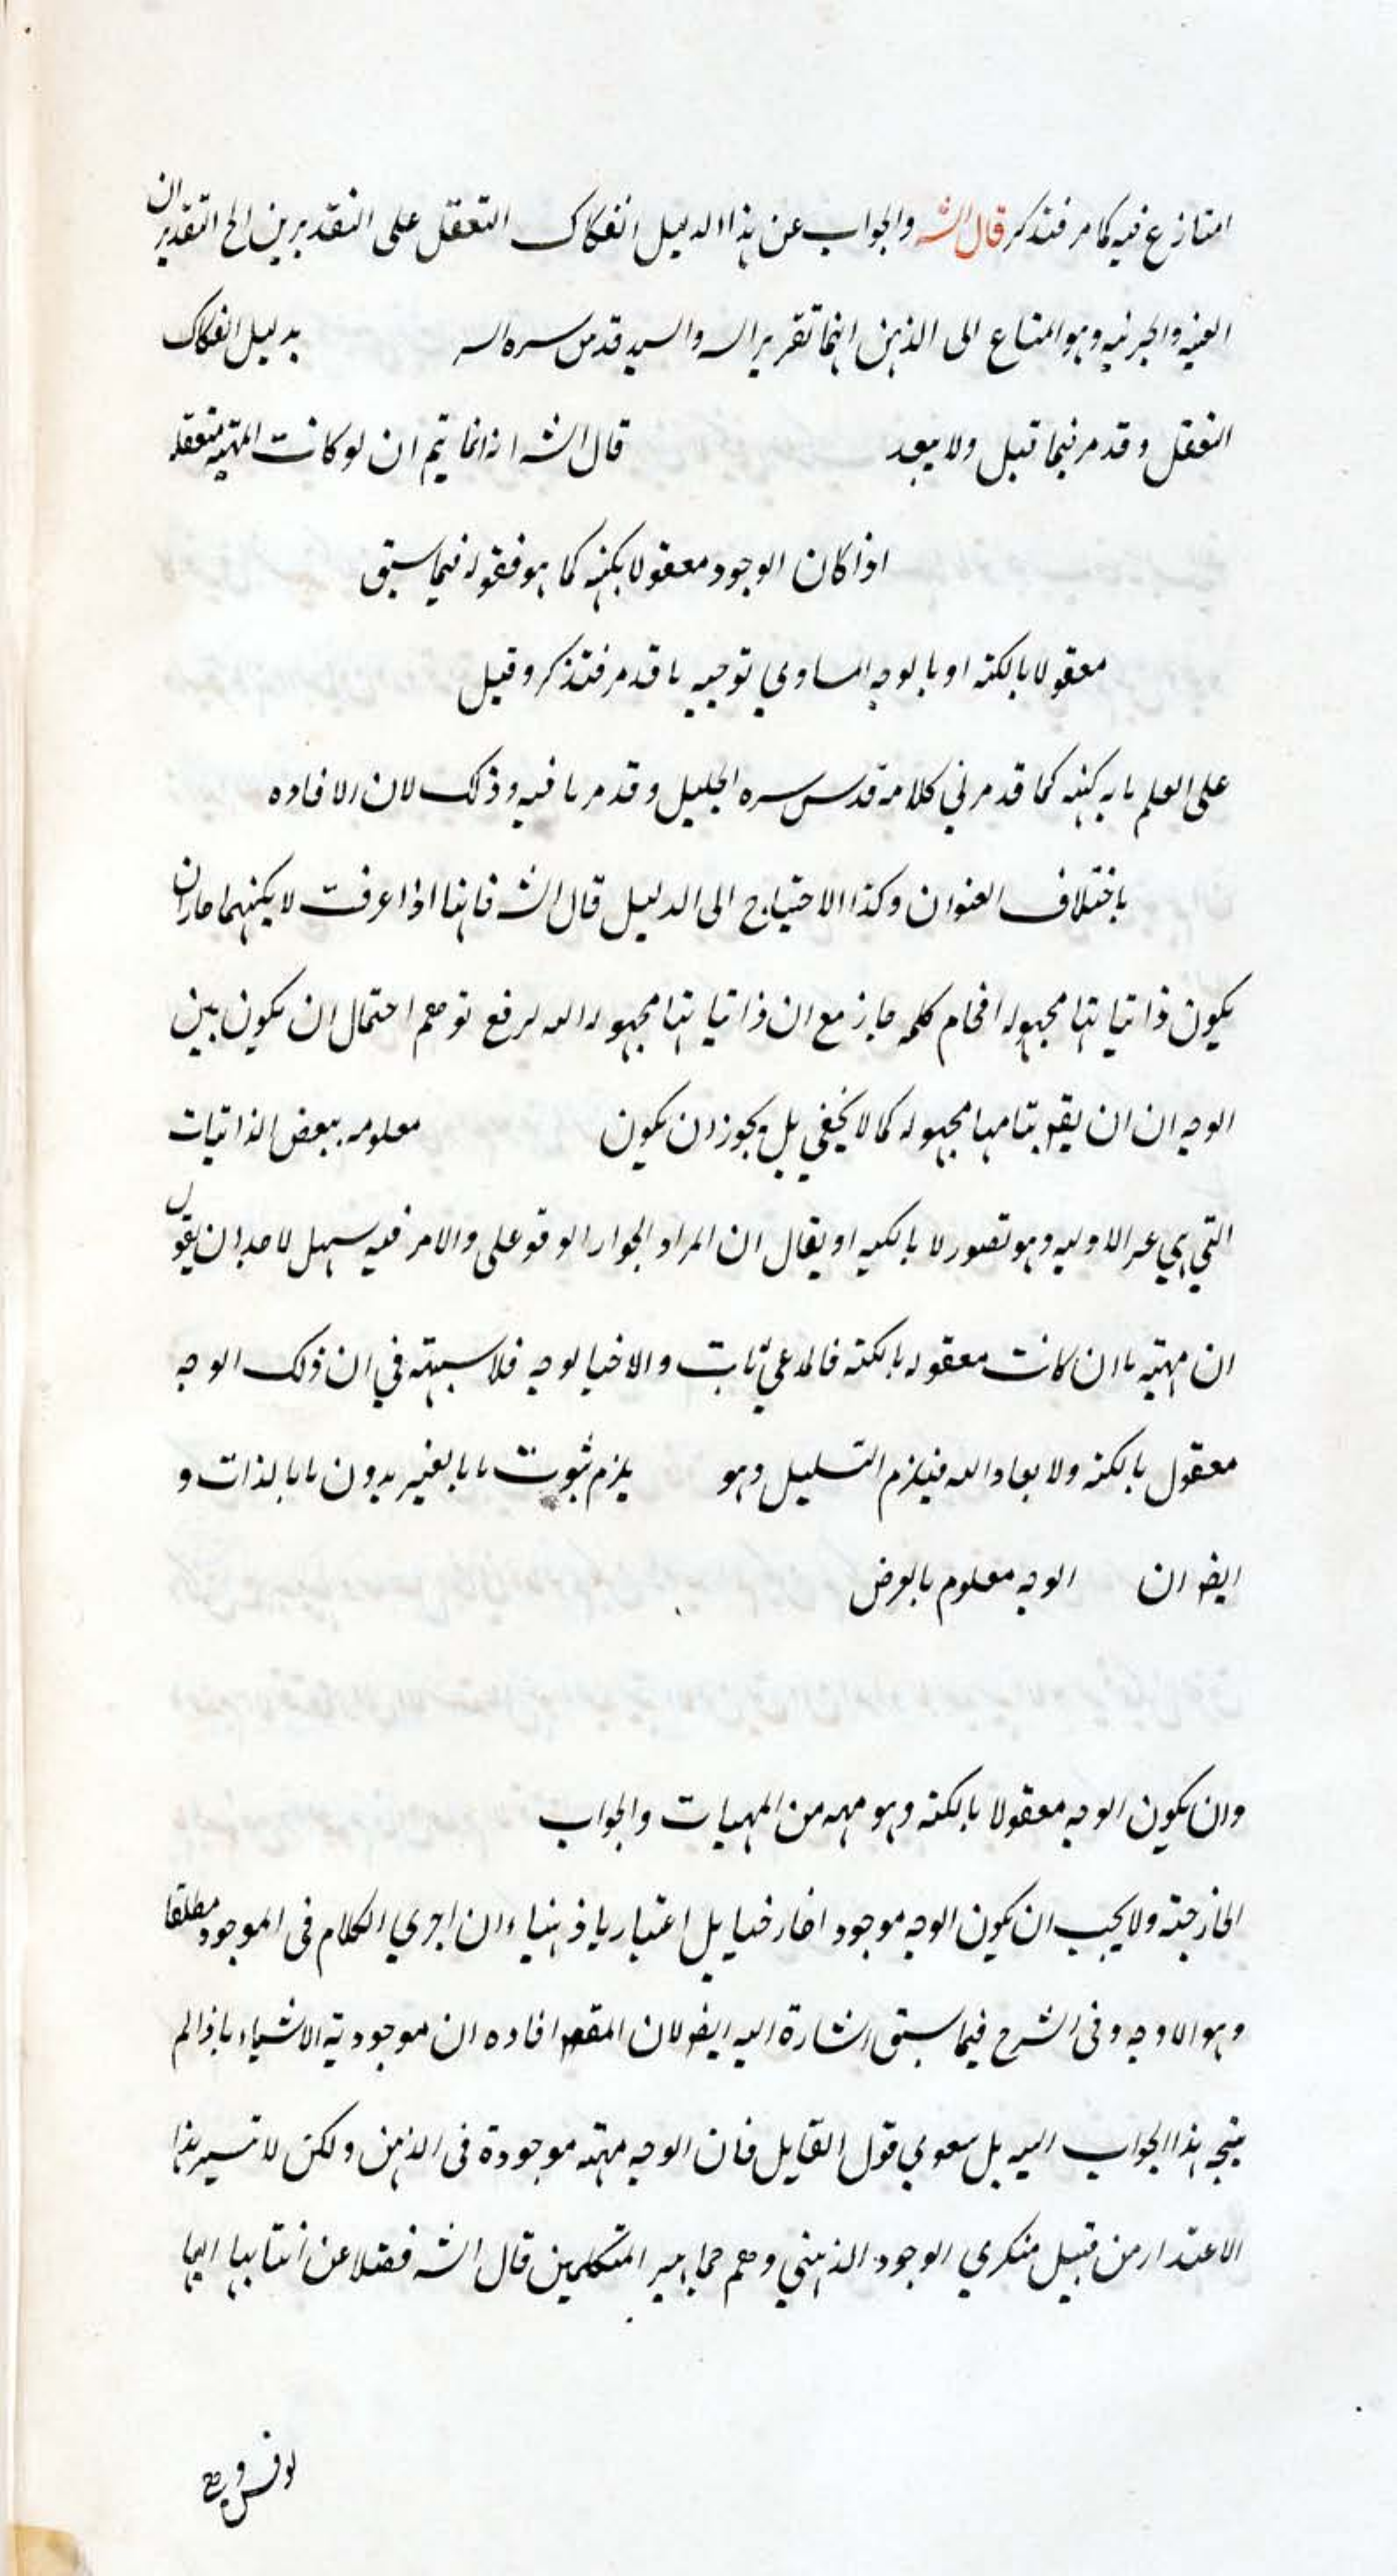 امتازع فيه كما مر فتذكر قال الشـ والجواب عن هذا الدليل انفكاك التعقل على التقديرين الخ التقديران
العينيه والجزئيه وهو المتاع الى الذهن انما تقرير الـ والسيد قدس سره الـ بدليل انفكاك
التعقل وقد مر فيما قبل ولا يبعد قال الشـ انما يتم ان لو كانت المهية متعقله
اذا كان الوجود معقولا بكنهه كما هو فقوله فيما سبق
معقولا بالكنه او بالوجه المساوي توجيه ما قد مر فتذكر وقيل
على العلم بانه كنهه كما قد مر في كلامه قدس سره الجليل وقد مر ما فيه وذلك لان الافاده
باختلاف العنوان وكذا الاحتياج الى الدليل قال الشـ فانها اذا عرفت لا بكنهها جاز ان
يكون ذاتياتها مجهوله اقحام كلمه جاز مع ان ذاتياتها مجهوله الـ لرفع توهم احتمال ان يكون بين
الوجه ان ان يقـ بتمامها مجهوله كما لا يخفى بل يجوز ان يكون معلومه ببعض الذاتيات
التي هي الاوليه وهو تصور لا بالكنه او يقال ان المراد الجواز الوقوعى والامر فيه سهل لاحد ان يقول
ان مهيته ما ان كانت معقوله بالكنه فالمدعي ثابت والا فبالوجه فلا شبهة في ان ذلك الوجه
معقول بالكنه ولا يعاد الـ فيلزم التسليل وهو يلزم ثبوت ما بالغير بدون ما بالذات و
ايضا ان الوجه معلوم بالعرض
وان يكون الوجه معقولا بالكنه وهو مهيه من المهيات والجواب
الخارجية ولا يجب ان يكون الوجه موجودا خارجيا بل اعتباريا ذهنيا وان اجري الكلام فى الموجود مطلقا
وهو الاوجه وفى الشرح فيما سبق اشارة اليه ايضا لان المقصود افاده ان موجودية الاشياء باذا لم
يتجه هذا الجواب اليه بل قول القايل فان الوجه مهيته موجودة فى الذهن ولكن لا تسير هذا
الاعتذار من قبيل منكري الوجود الذهني وهم جماهير المتكلمين قال الشـ فضلا عن انتسابها اليها